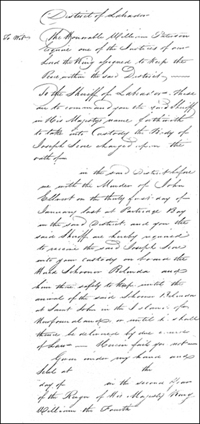 District of Labrador
To Wit The Honorable William Paterson
Esquire one of the Justices of our
Lord the King assigned to keep the
Peace within the said District
To the Sheriff of Labrador. These
are to command you the said Sheriff
in His Majesty's name forthwith
to take into Custody the Body of
Joseph Lane charged upon the
oath of
in the said District before
me with the Murder of John
Ellcort on the thirty first day of
January last at Partridge Bay
in the said District and you the
said Sheriff are hereby required
to receive the said Joseph Lane
into your custody on board the
Schooner Belinda and
him there safely to keep until the
arrival of the said Schooner Belinda
at Saint John in the Island of
Newfoundland or until he shall
thence be delivered by due course
of Law. Herein fail you not
Given under my hand and
Seal at the
day of in the second Year
of the Reign of His Majesty King
William the Fourth